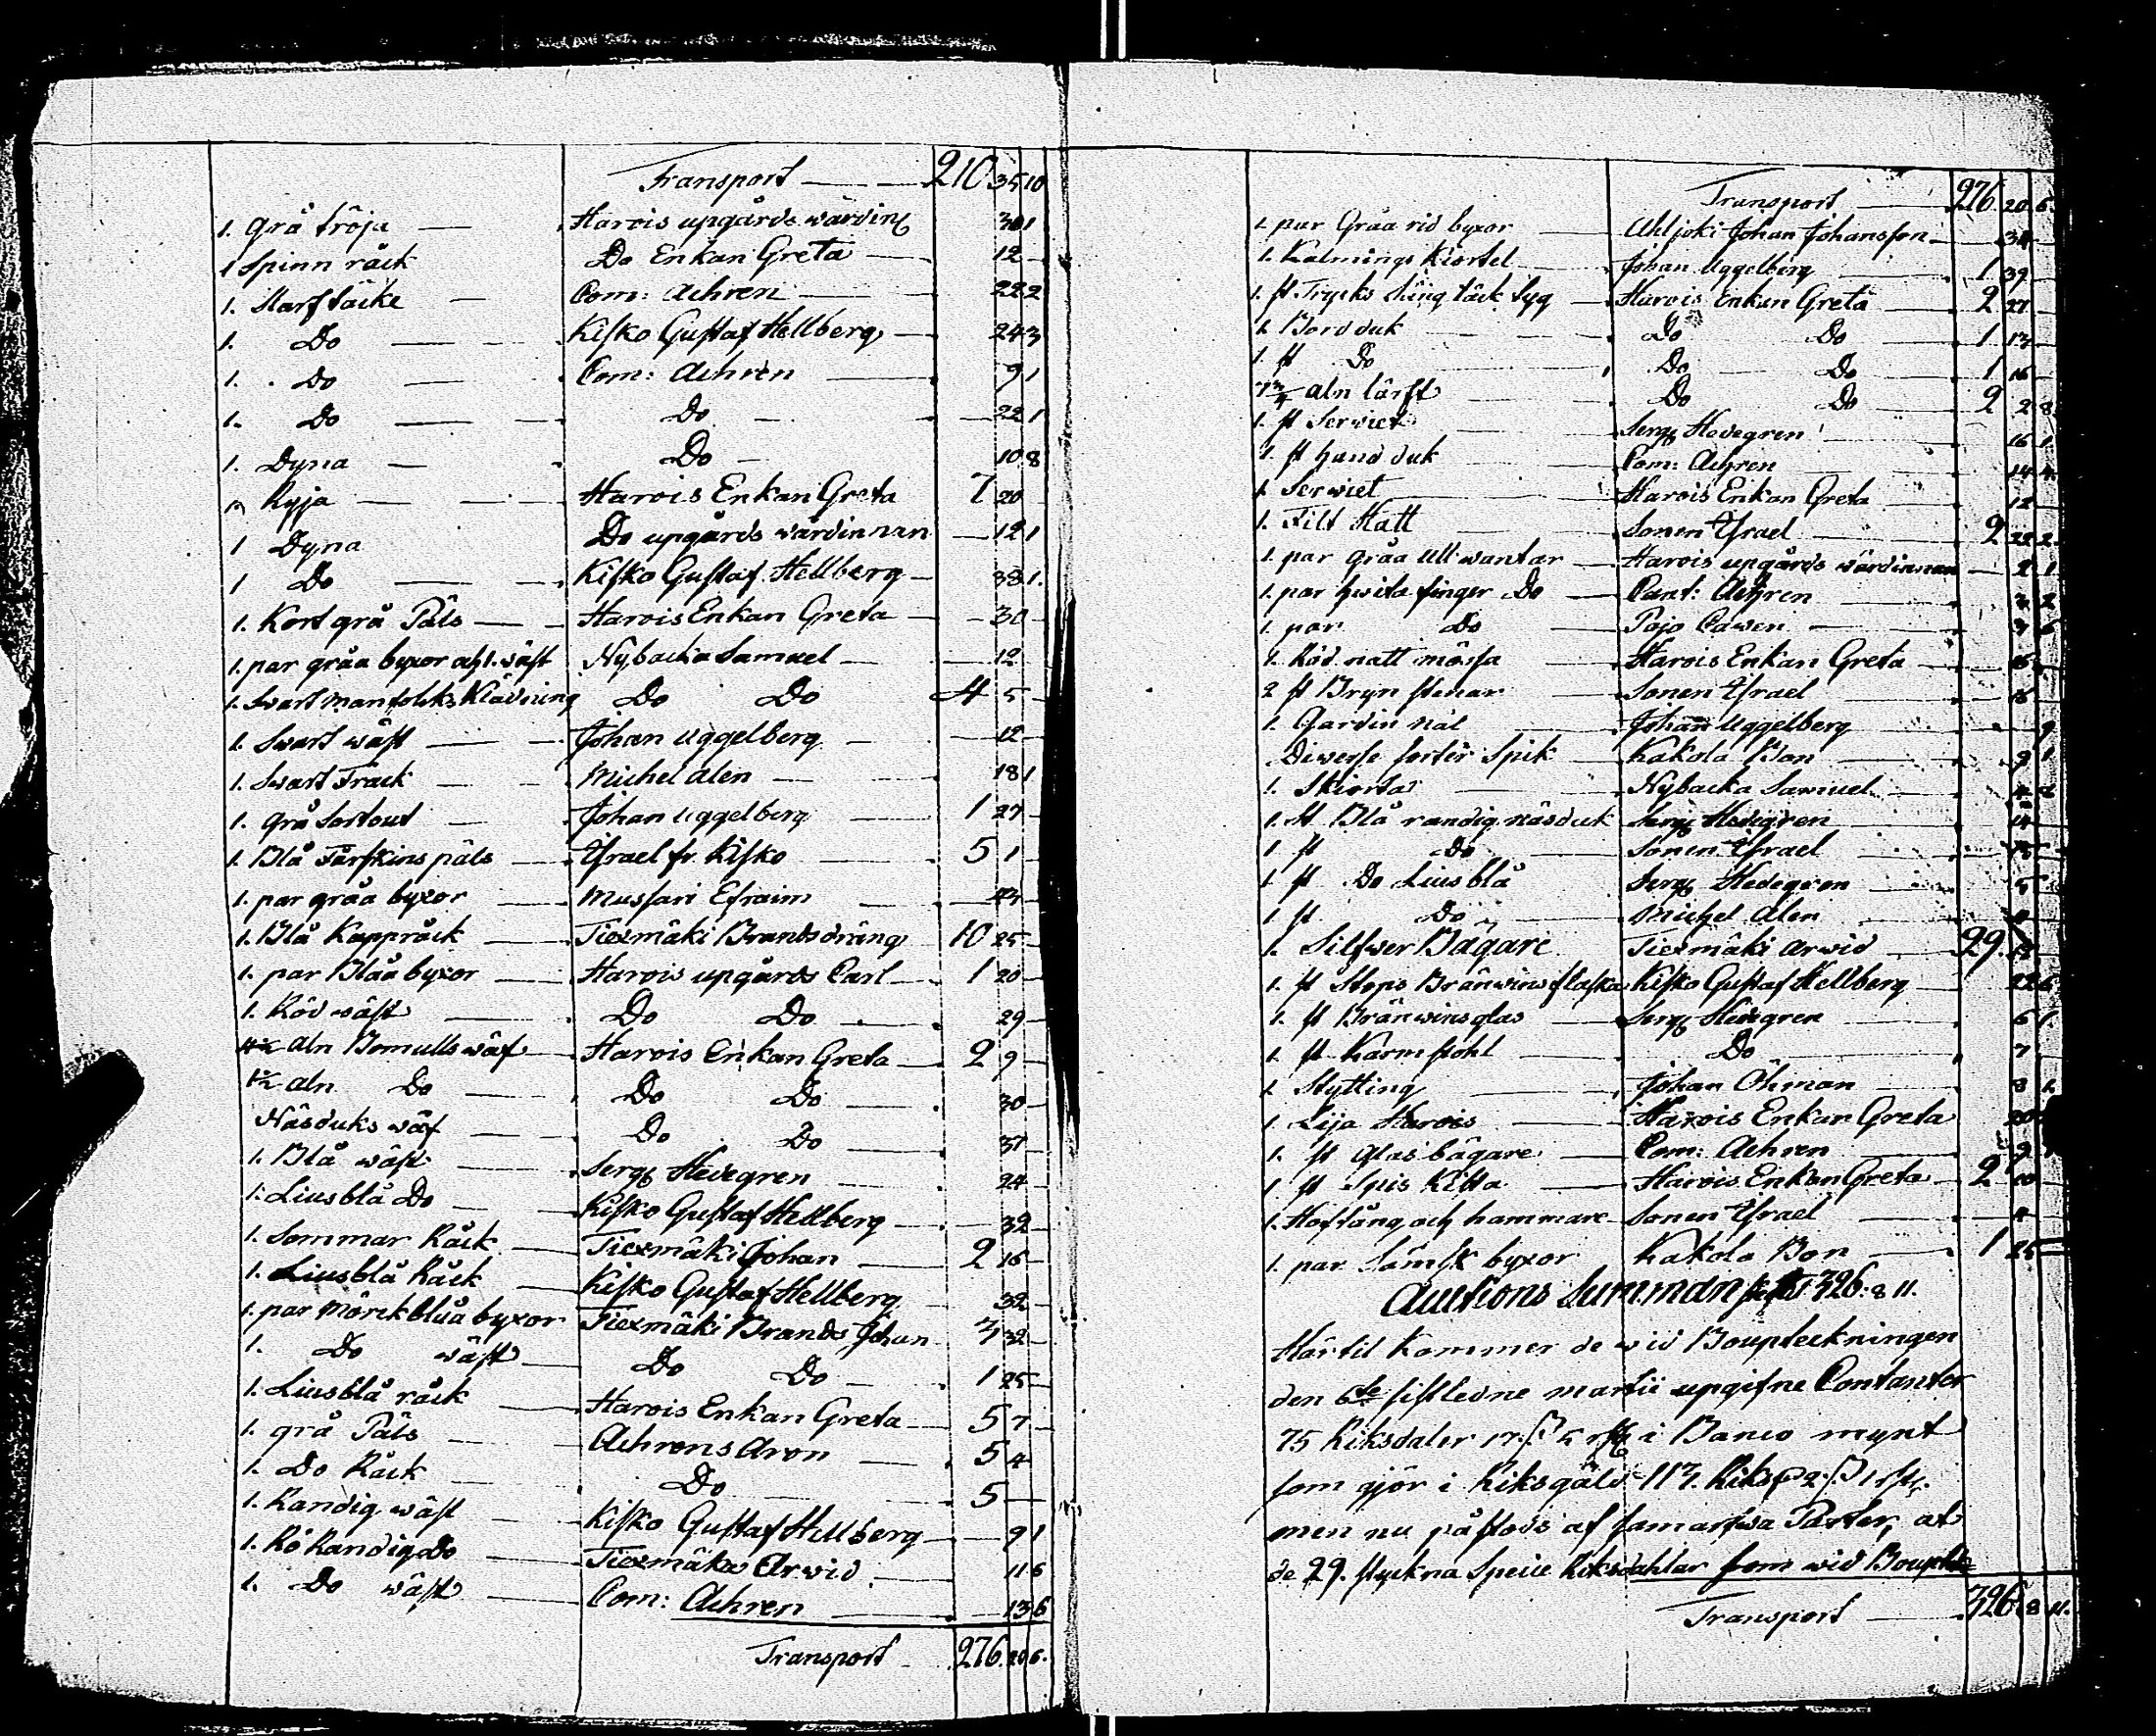 Transport — 210 35 10
1. grå tröja — Harois upgårds wärdin 30 1
1 Spinn råck Do Enkan Greta — 12 —
1. Skarf täcke — Com: Achren — 22 2
1. Do — Kisko Gustaf Hellberg — 24 3
1. Do — Com: Achren — 9 1
1. Do — Do — 22 1
1. Dyna — Do — 10 8
1 Ryja — Harois Enkan Greta 7 20
1 Dyna Do upgårds wärdinnan — 12 1
1 Do — Kisko Gustaf Hellberg — 38 1.
1. Kort grå Päls — Harois Enkan Greta — 30 —
1. par gråa byxor och 1. wäst Nybacka Samuel — 12
1. Swart manfolks Klädning Do Do 4 5 —
1. Swart wäst — Johan Uggelberg — 12 —
1. Swart Frack — Michel Alen — 18 1
1. grå Sortout — Johan Uggelberg 1 27 —
1. Blå Fårskins päls — Israel fr. Kisko — 5 1 —
1. par gråa byxor — Mussari Efraim —
1. Blå Kappråck — Tiexmäki Brands dräng 10 25 —
1. par Blåa byxor — Harois upgårds Carl — 1 20 —
1. Röd wäst — Do Do — 29 —
aln Bomulls wäf — Harois Enkan Greta — 2 9 —
1½ aln Do — Do Do — 30 —
Näsduks wäf — Do Do — 37 —
1. Blå wäst — Serg Hedegren — 24 —
1. Liusblå Do — Kisko Gustaf Hellberg — 32 —
1. Sommar Råck — Tiexmäki Johan — 2 16 —
1. Liusblå Råck — Kisko Gustaf Hellberg — 32 —
1. par Mörckblåa byxor Tiexmäki Brands Johan 3 32 —
1. Do wäst — Do Do — 1 25 —
1. Liusblå råck — Harois Enkan Greta — 5 7 —
1. grå Päls — Achrens Aron — 5 4
1. Do Råck — Do — 5 —
1. Randig wäst — Kisko Gustaf Hellberg — 9 1
1. Rö Randig Do — Tiexmäki Arwid — 11 6
1. Do wäst — Com: Achren — 13 6
Transport — 276 20 6.
Transport — 276 20 6.
1. par Gråa rid byxor — Ahljoki Johan Johansson — 34 —
1. Kalmings Kiortel — Johan Uggelberg — 1 39 —
1. st Trycks Säng täck tyg — Harois Enkan Greta — 2 27 —
1. Bordduk — Do Do — 1 13 —
1. st Do — Do Do — 1 16 —
7¾ aln lärft — Do Do — 2 2 8
1. st Serviet — Serg Hedegren 16 1
1. st handduk — Com: Achren — 14 4
1. Serwiet — Harois Enkan Greta — 12 —
1. Filt Hatt — Sonen Israel — 2 22 2
1. par gråa Ull wantar — Harois upgårds wärdinnan — 2 1
1. par hwita finger Do — Cant: Achren — 3 2
1. par Do — Pojo Cawen — 3 6
1. Röd natt mössa — Harois Enkan Greta —
2 st Bryn stenar — Sonen Israel — 16 —
1. Gardin Nål — Johan Uggelberg — 9
Diwerse sorter Spik — Kakola Bon — 9 1
1. Skiorta — Nybacka Samuel —
1. st Blå randig näsduk — Serg Hedegren —
1 st Do — Sonen Israel —
1 st Do Lius blå — Serg Hedegren — 5
1 st Do — Michel Alen —
1. Silfwer Bägare — Tiexmäki Arwid — 29.
1. st Stops Bränwins flaska Kisko Gustaf Hellberg — 22 6
1. st Bränwins glas — Serg Hedegren — 6 1
1. st Karmstohl — Do — 7
1. Stytting — Johan Öhman — 8 1.
1. Lija Harois — Harois Enkan Greta
1. st Glas bägare — Com: Achren — 9
1 st Spis Kitta — Harois Enkan Greta — 2 10 —
1. Hoftång och hammare Sonen Israel —
1. par Sämsk byxor Kakola Bon — 1 25
Auctions Summan 326: 8 11.
Här til Kommer de wid Boupteckningen
den 6te sistledne martii upgifne Contanter
75 Riksdaler 17 ß 5 r i Banco mynt
som gjör i Riksgäld 113. Riksd 2 ß 1 rst.
men nu påstods af samtelwa Parter, at
de 29. styckna Specie Riksdahlar som wid Boupt
Transport — 326 8 11.